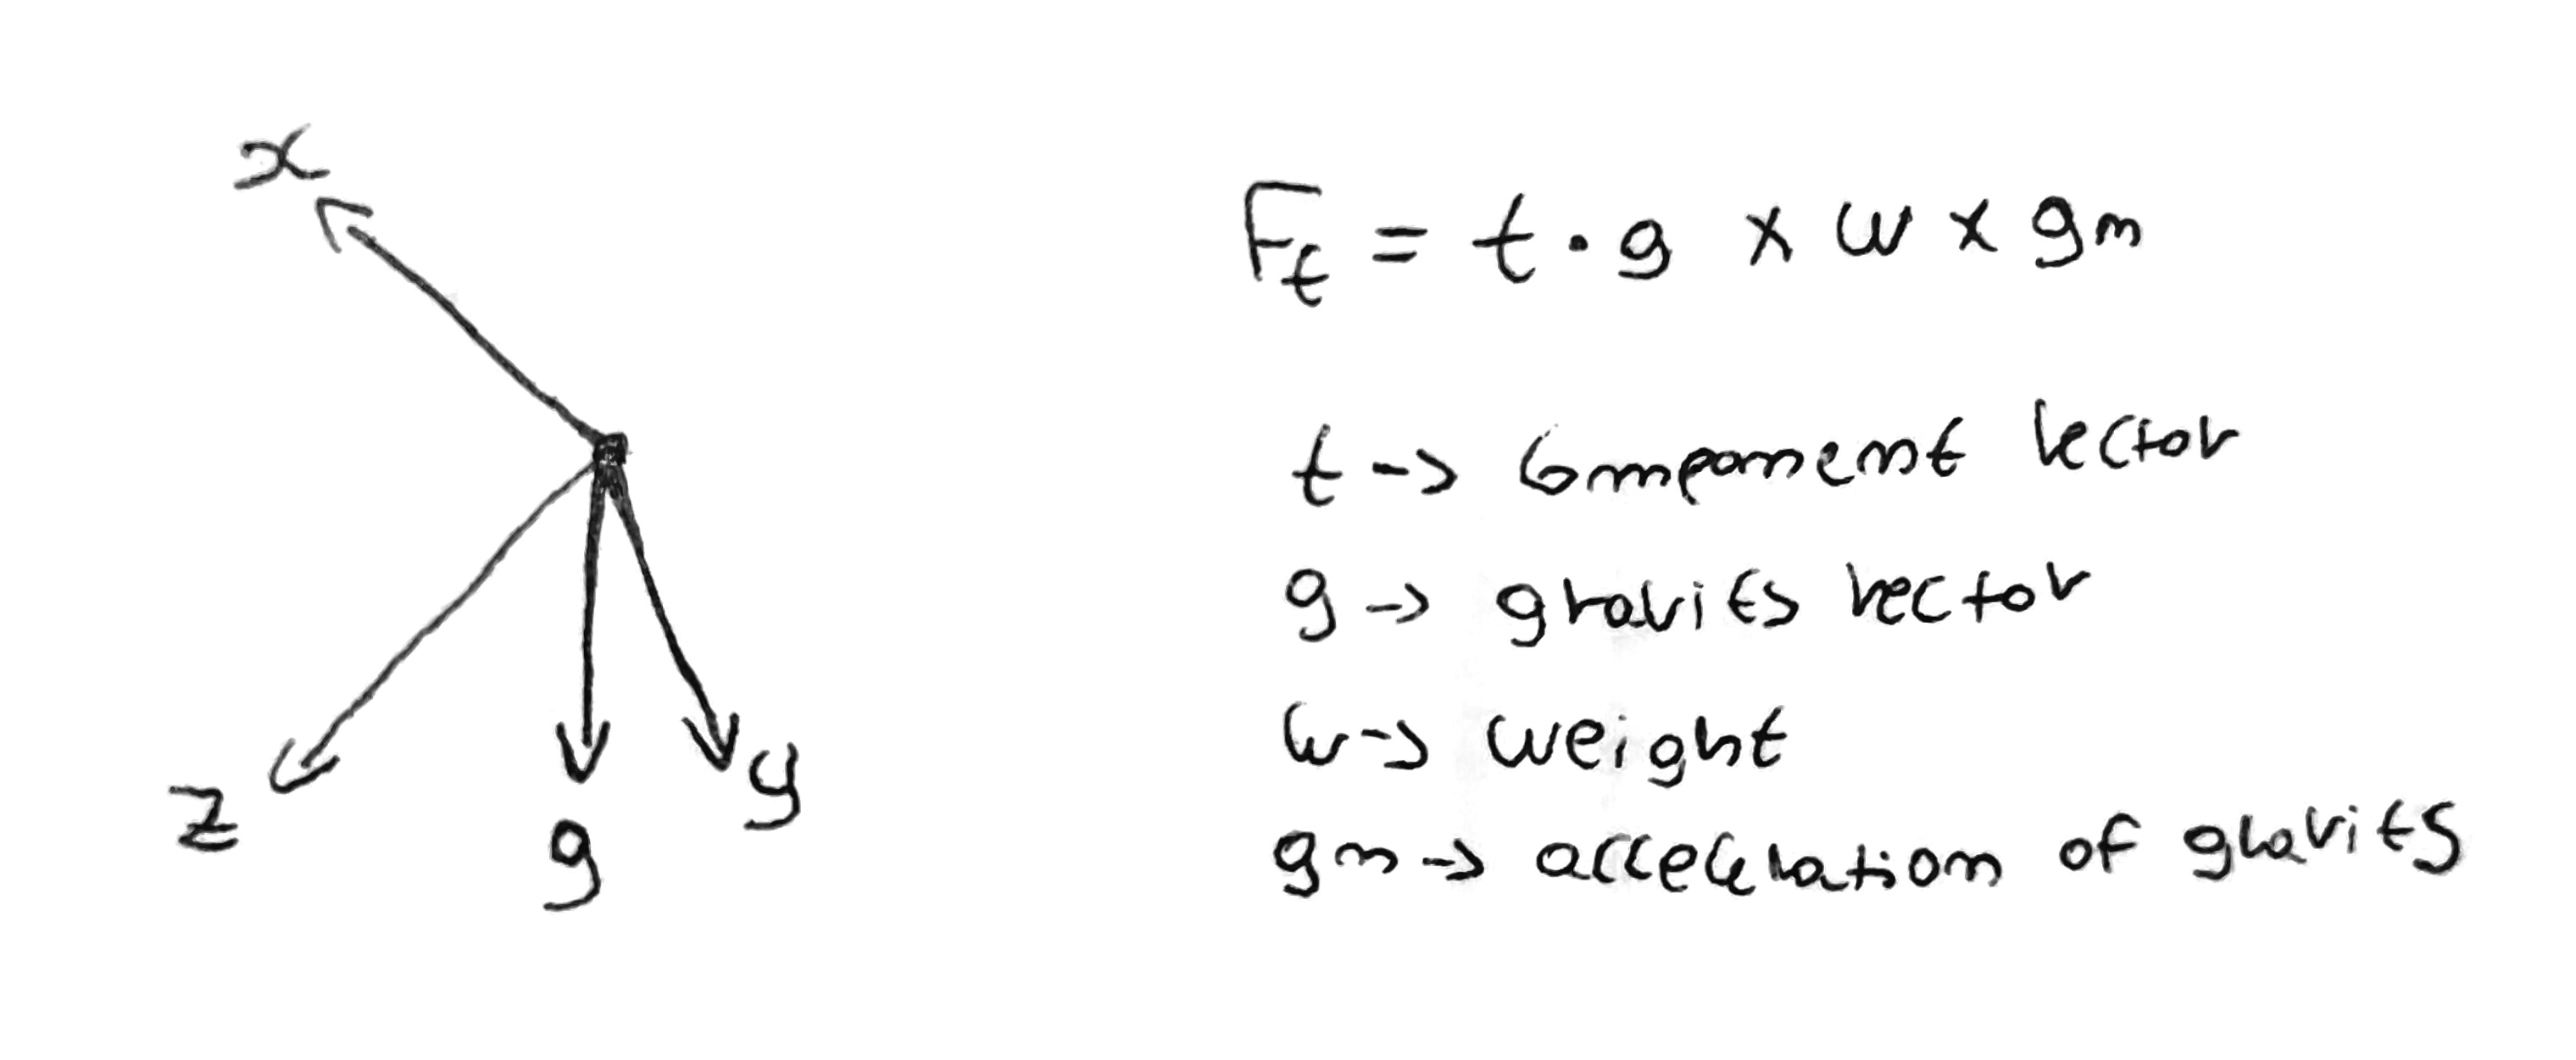 x
z
g
y
Ft = t · g x w x gm
t -> component vector
g -> gravity vector
w -> weight
gm -> acceleration of gravity